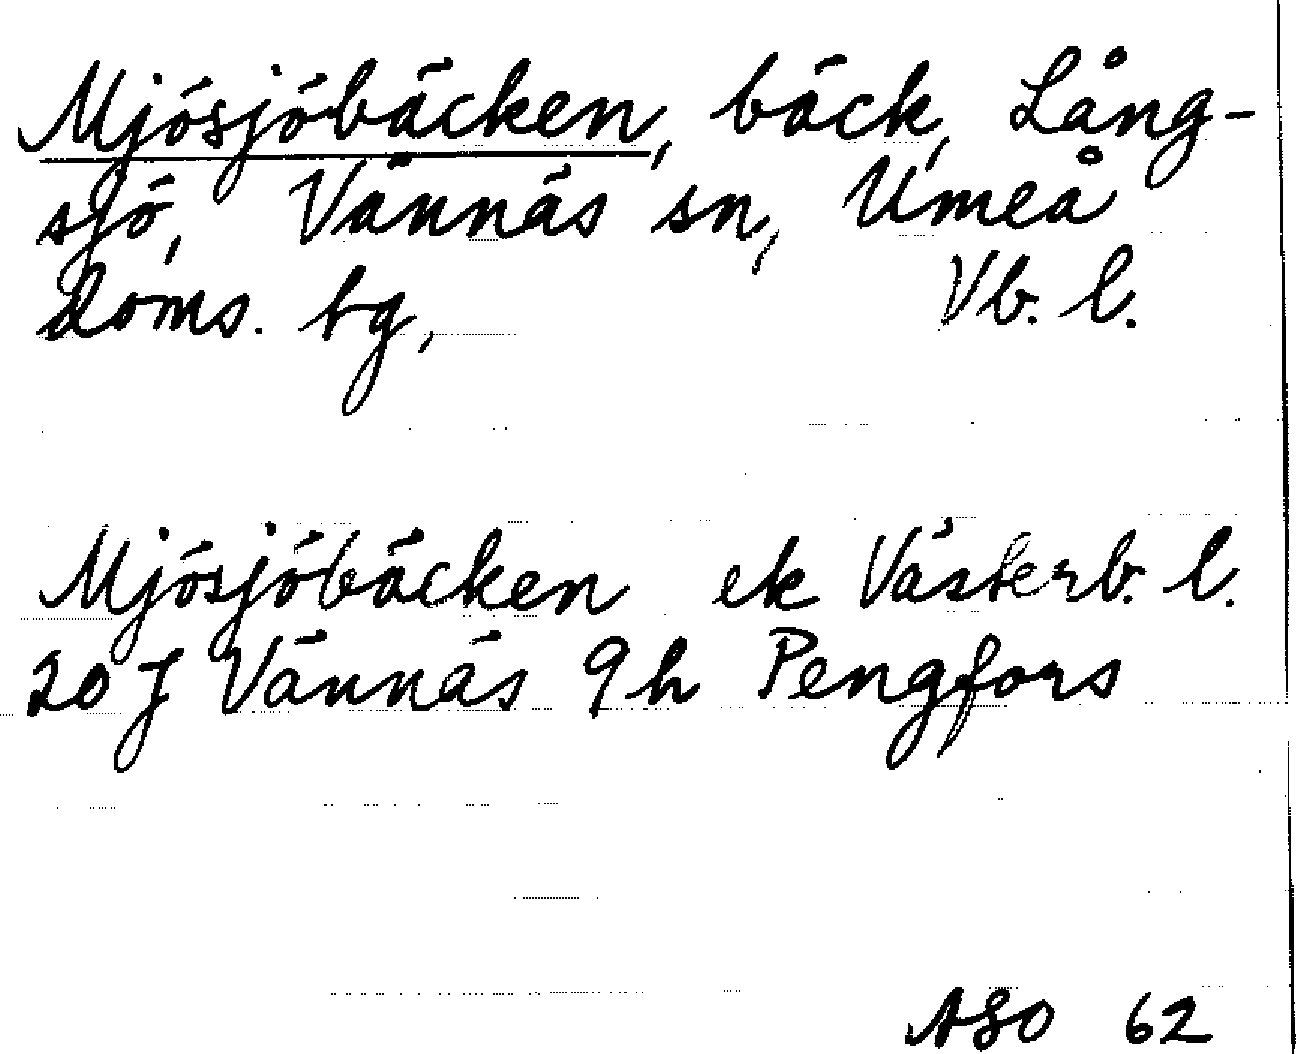 Mjösjöbäcken, bäck, Lång-
sjö, Vännäs sn, Umeå
doms. bg, Vb. l.
Mjösjöbäcken ek Västerb. l.
20 J Vännäs 9h Pengfors
ASO 62